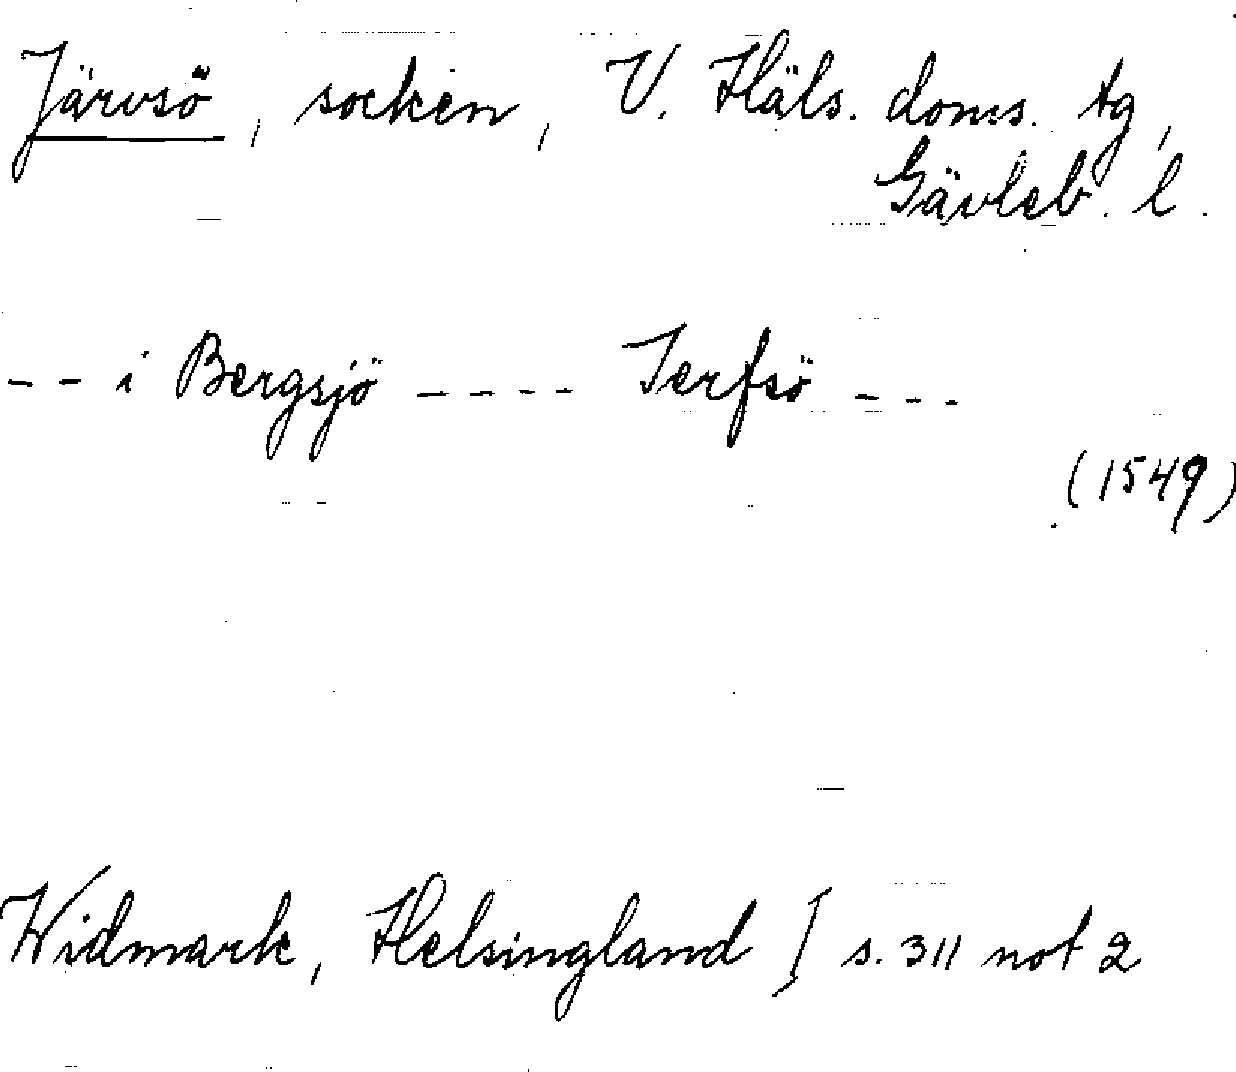 Järvsö, socken, V. Häls. doms. tg,
Gävleb. l.
-- i Bergsjö ---- Jerfsö ---
(1549)
Widmark, Helsingland I s. 311 not 2